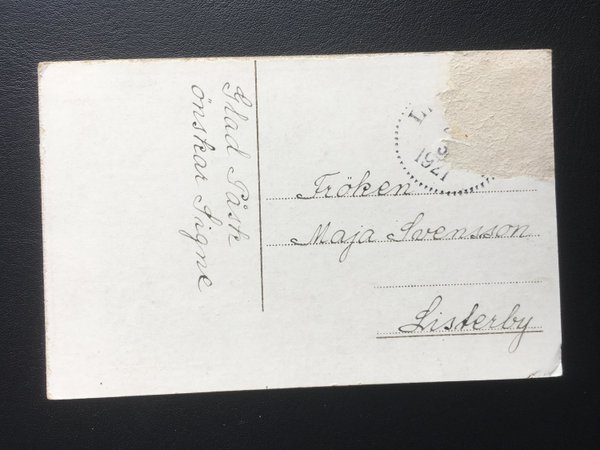 Glad Påsk
önskar Signe
1921
Fröken
Maja Svensson
Listerby